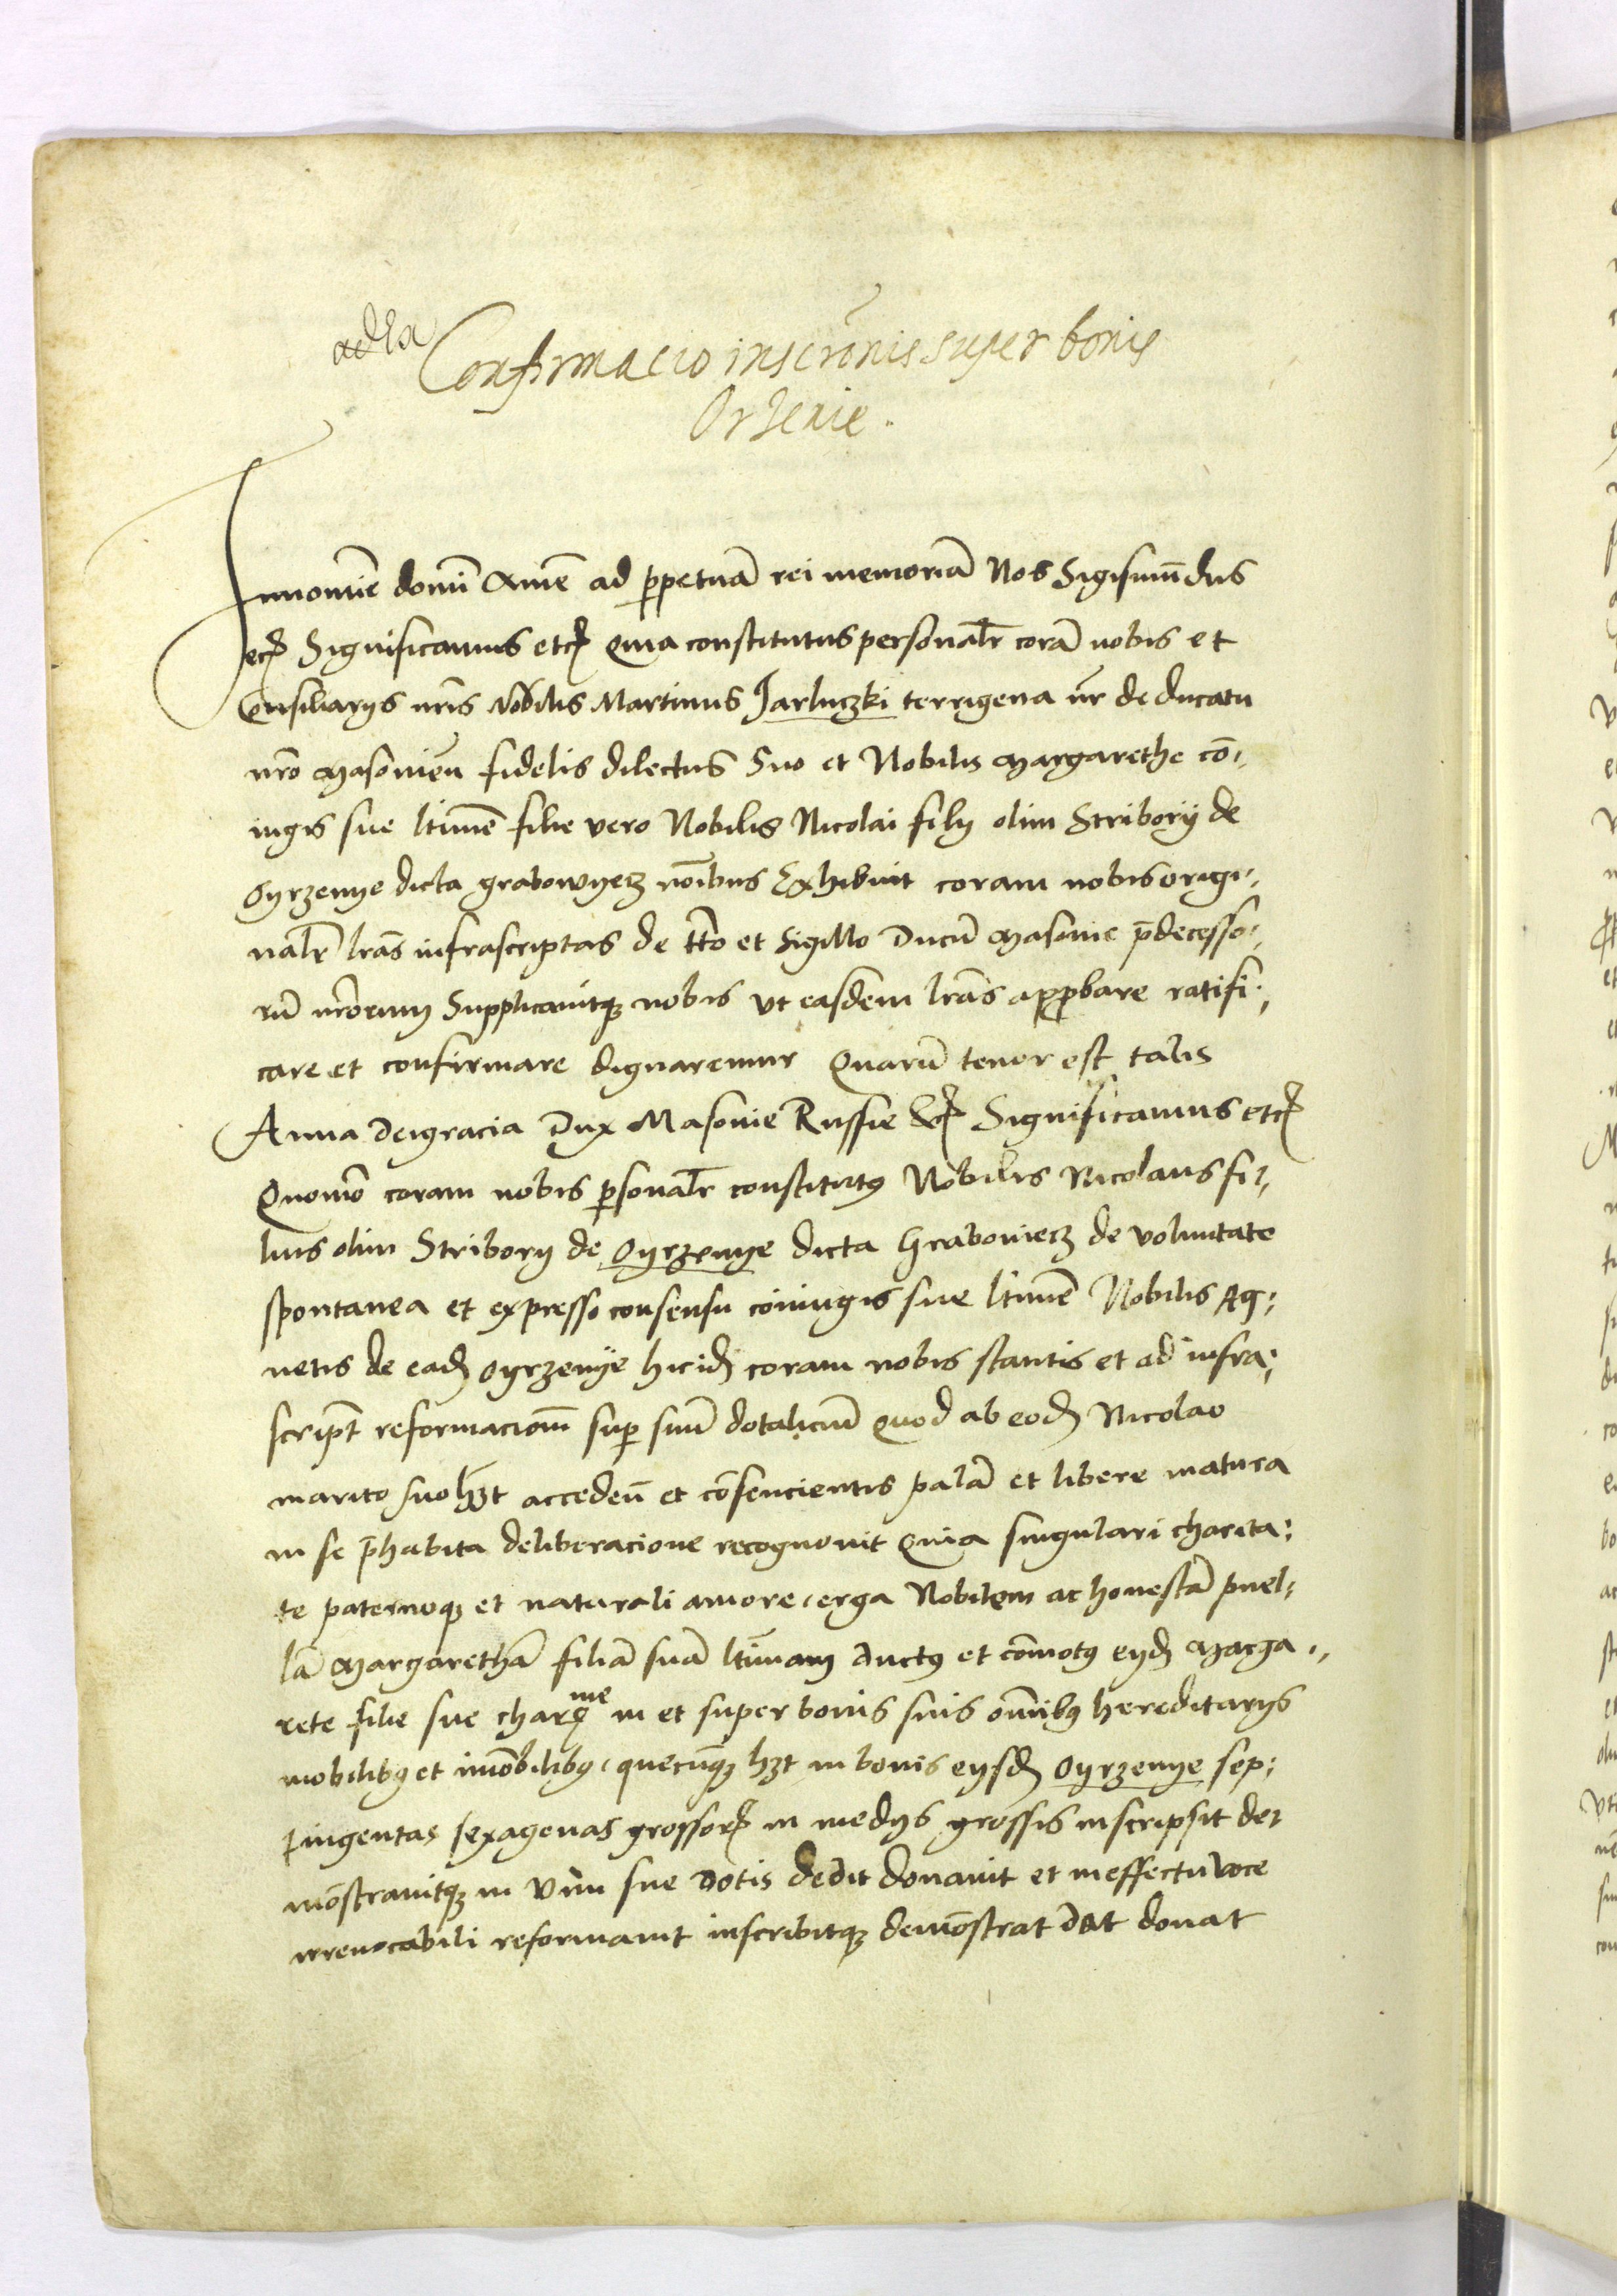 Confirmacio inscrõnis super bonis
Orzenie.
In nomĩe domĩ Amẽ ad perpetuã rei memoriã Nos Sigismũdus
etc Significamus etc Quia constitutus personalr̃ corã nobis et
Consiliarys nr̃is Nobilis Martinus Jarluczki terrigena nr̃ de ducatu
nr̃o Masouień fidelis dilectus Suo et Nobilis Margarethe cõ-
iugis sue ltimẽ filie vero Nobilis Nicolai fily olim Stribory de
Oyrzenye dicta grabowyecz noĩbus Exhibuit coram nobis origi-
nalr̃ lrãs infrascriptas de tto et Sigillo Ducũ Masouie p̃decesso-
rũ nr̃orum Supplicauitqz nobis vt easdem lrãs approbare ratifi-
care et confirmare dignaremur Quarũ tenor est talis
Anna Dei gracia Dux Masouie Russie etc Significamus etc
Quomõ coram nobis personalr̃ constitutus Nobilis Nicolaus fi-
lius olim Stribory de Oyrzenye dicta Graboviecz de voluntate
spontanea et expresso consensu coniugis sue ltimẽ Nobilis Ag-
netis de eadẽ Oyrzenye hicidẽ coram nobis stantis et ad infra-
script̃ reformacionẽ super suũ dotaliciũ quod ab eodẽ Nicolao
marito suo hzt accedeñ et cõsencientis palã et libere matura
in se p̃habita deliberacione recognouit Quia singulari charita-
te paternoqz et naturali amore erga Nobilem ac honestã puel-
lã Margarethã filiã suã ltimam ductus et cõmotus eydẽ Marga-
rete filie sue charme in et super bonis suis omnibus hereditarys
mobilibus et imobilibus quecũqz hzt in bonis eysdẽ Oyrzenye sep-
tingentas sexagenas grossorũ in medys grossis inscripsit de-
mõstrauitqz in vim sue dotis dedit donauit et in effectu voce
irreuocabili reformauit inscribitqz demõstrat dat donat